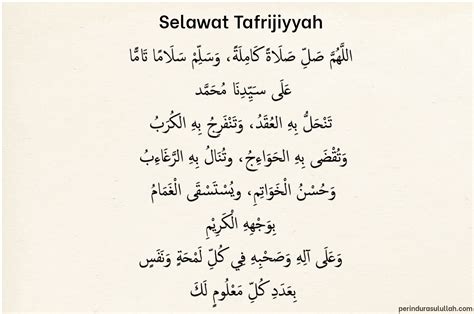 Selawat Tafrijiyyah
اللَّهُمَّ صَلِّ صَلَاةً كَامِلَةً، وَسَلِّمْ سَلَامًا تَامًّا
عَلَى سَيِّدِنَا مُحَمَّد
تَنْحَلُّ بِهِ الْعُقَدُ، وَتَنْفَرِجُ بِهِ الْكُرَبُ
وَتُقْضَى بِهِ الْحَوَاءِجُ، وتُنَالُ بِهِ الرَّغَاءِبُ
وَحُسْنُ الْخَوَاتِمِ، ويُسْتَسْقَى الْغَمَامُ
بِوَجْهِهِ الْكَرِيْمِ
وَعَلَى آلِهِ وَصَحْبِهِ فِي كُلِّ لَمْحَةٍ وَنَفَسٍ
بِعَدَدِ كُلِّ مَعْلُومٍ لَكَ
perindurasulullah.com